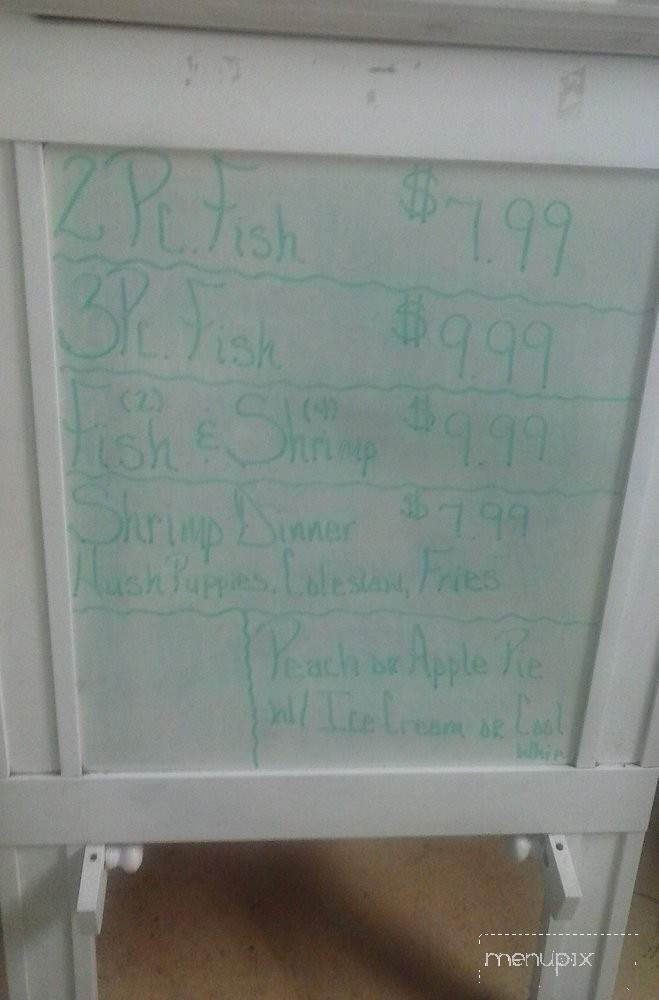 2 Pc. Fish $7.99
3 Pc. Fish $9.99
(2) (4)
Fish & Shrimp $9.99
Shrimp Dinner $7.99
Hush Puppies, Coleslaw, Fries
Peach or Apple Pie
w/ Ice Cream or Cool
Whip
menupix